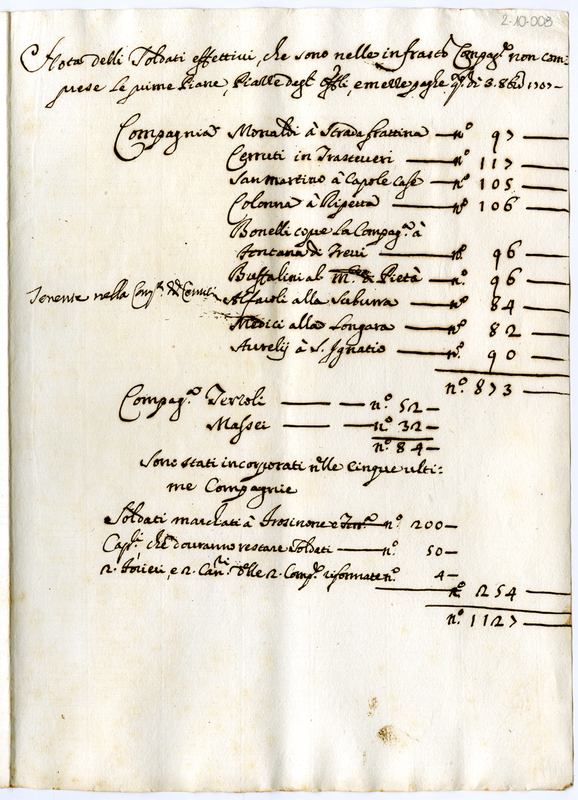 2-10-008
Nota delli Soldati effettivi, che sono nelle infrastte Compag.e non com-
prese le prime Piane, Piazze degl' Offli, e mezze paghe
Compagnia Monaldi à Strada frattina n.o 97
Cerruti in Trastevere n.o 117
San martino à Capo le Case n.o 105
Colonna à Ripetta n.o 106
Bonelli la Compag.a à
Fontana di Trevi n.o 96
Buffalini al M.te di Pietà n.o 96
nella Comp.a alla Suburra n.o 84
Medici alla Longara n.o 82
Aurelij à S. Ignatio n.o 90
n.o 873
Compag.e n.o 52
Massei n.o 32
n.o 84
Sono stati incorporati nelle Cinque ulti:
me Compagnie
Soldati marchati à Frosinone e n.o 200
che dovranno restare Soldati n.o 50
2. Forieri, e 2. delle 2. Comp.e riformate n.o 4
n.o 254
n.o 1127